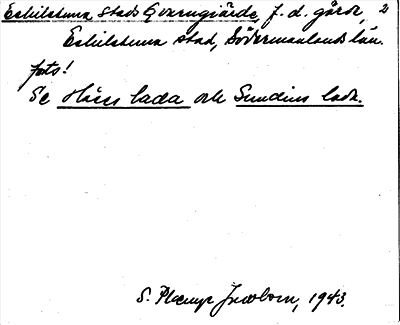 Eskilstuna stads Qvarngiärde, f. d. gård, 2
Eskilstuna stad, Södermanlands län.
foto!
Se Häers lada och Sundins lada.
S. Plæmp Jacobson, 1943.